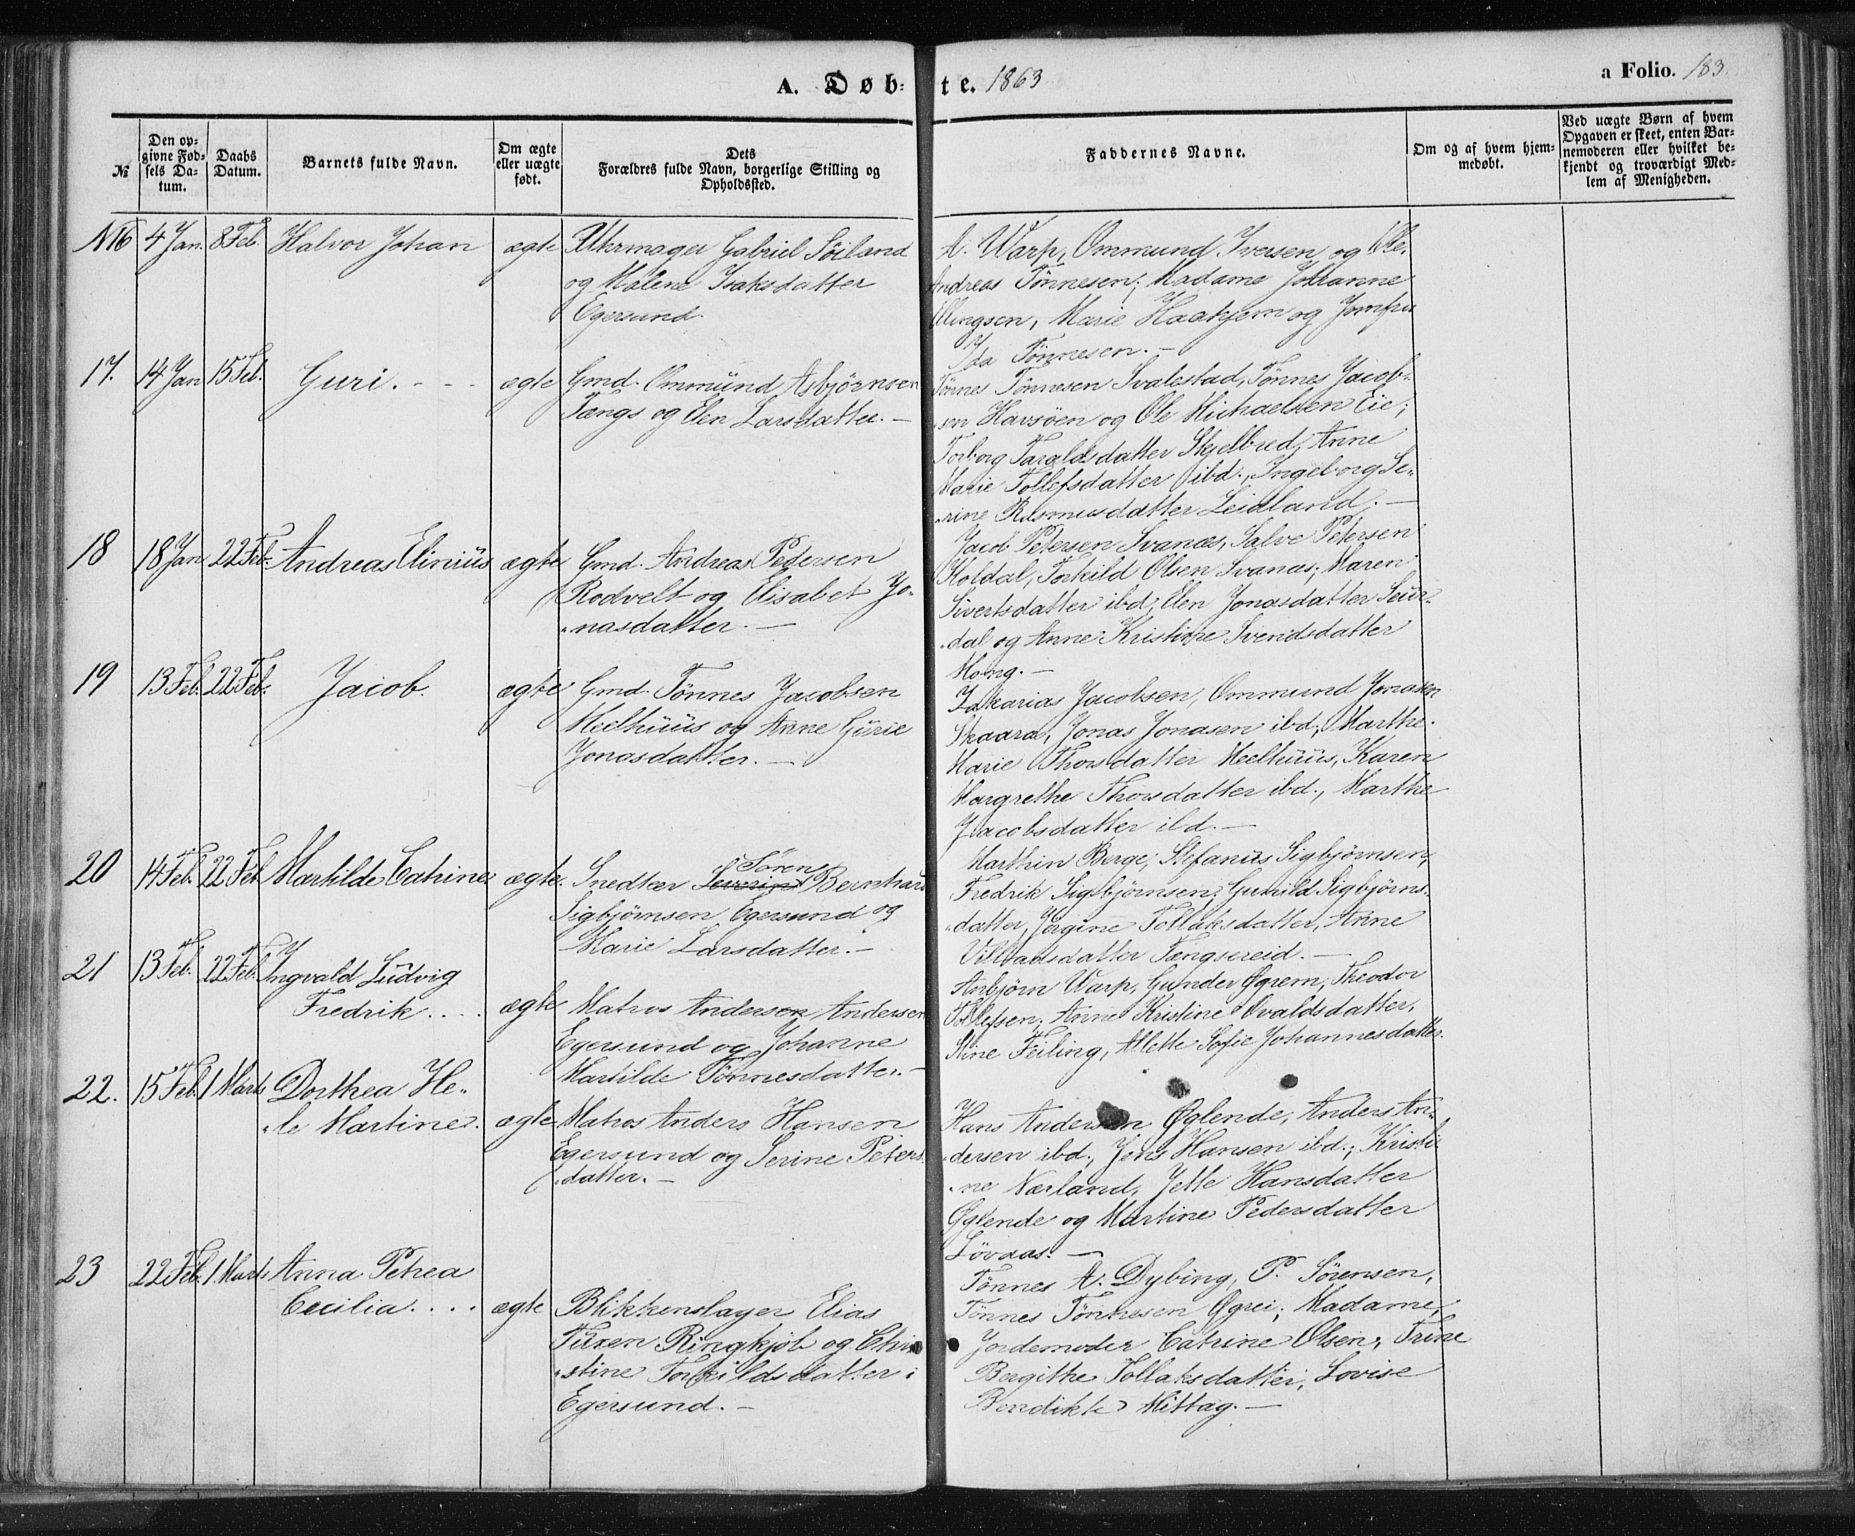 A. Døb-te. 1863
a Folio. 183.
№
Den op-
givne Fød-
sels Da-
tum.
Daabs
Datum.
Barnets fulde Navn.
Om ægte
eller uægte
født.
Dets
Forældres fulde Navn, borgerlige Stilling og
Opholdssted.
Faddernes Navne.
Om og af hvem hjem-
medøbt.
Ved uægte Børn af hvem
Opgaven er skeet, enten Bar-
nemoderen eller hvilket be-
kjendt og troværdigt Med-
lem af Menigheden.
N16 4 Jan. 8 Feb. Halvor Johan ægte Uhrmager Gabriel Söiland
og Malene Isaksdatter
Egersund.
A. Warp, Ommund Iversen og Ole
Andreas Tönnesen; Madame Johanne
Ellingsen, Marie Haakjem og Jomfru
Ida Tönnesen.—
17. 14 Jan 15 Feb. Guri. - - - ægte Gmd. Ommünd Asbjörnsen
Tængs og Elen Larsdatter.—
Tönnes Tönnesen Svalestad, Tønnes Jacob-
sen Havsöen og Ole Michaelsen Eie;
Torborg Taraldsdatter Skjelbred, Anne
Marie Tollefsdatter ibd., Ingeborg Se-
rine Rasmusdatter Leidland.—
18 18 Jan 22 Feb. Andreas Eliniüs ægte Gmd. Andreas Pedersen
Rodvelt og Elisabet Jo-
nasdatter.—
Jacob Petersen Svanæs, Salve Petersen
Koldal, Torkild Olsen Svanæs; Maren
Sivertsdatter ibd; Elen Jonasdatter Seur-
dal og Anne Kristine Svendsdatter
Mong.—
19 13 Feb. 22 Feb. Jacob. ægte Gmd. Tönnes Jacobsen
Meelhüüs og Anne Gürie
Jonasdatter.—
Zakarias Jacobsen, Ommund Jonasen
Skaara, Jonas Jonasen ibd; Marthe
Marie Thorsdatter Meelhüüs, Karen
Margrethe Thorsdatter ibd., Marthe
Jacobsdatter ibd.—
20 14 Feb. 22 Feb Martilde Catrine ægte. Snedker Severin Sören Bernhard
Sigbjørnsen Egersund og
Marie Larsdatter.—
Marthin Berge; Stefanüs Sigbjörnsen,
Fredrik Sigbjörnsen; Gunild Sigbjörns-
datter, Jörgine Tollaksdatter, Anne
Villumsdatter Tængsereid.—
21 13 Feb. 22 Feb. Ingvald Lüdvig
Fredrik . . . . ægte Matros Andersen Andersen
Egersund og Johanne
Martilde Tönnesdatter.—
Anbjörn Warp, Gunder Øgrem, Theodor
Tollefsen; Anne Kristine Osvaldsdatter,
Stine Feiling, Allette Sofie Johannesdatter.
22. 15 Feb. 1 Marts Dorthea He-
le Martine. ægte Matros Anders Hansen
Egersund og Serine Peters-
datter.—
Hans Andersen Øglende, Anders An-
dersen ibd., Jens Hansen ibd.; Kristi-
ne Nærland, Jette Hansdatter
Øglende og Martine Pedersdatter
Lövaas.—
23 22 Feb. 1 Marts Anna Petrea
Cecilia. . . . ægte Blikkenslager Elias
Türen Ringkjöb og Chri-
stine Torkildsdatter i
Egersund.—
Tönnes A. Dybing, P. Sørensen,
Tönnes Tönnesen Øgrei; Madame,
Jordemoder Catrine Olsen; Trine
Bergithe Tollaksdatter, Lovise
Bendikte Mittag.—